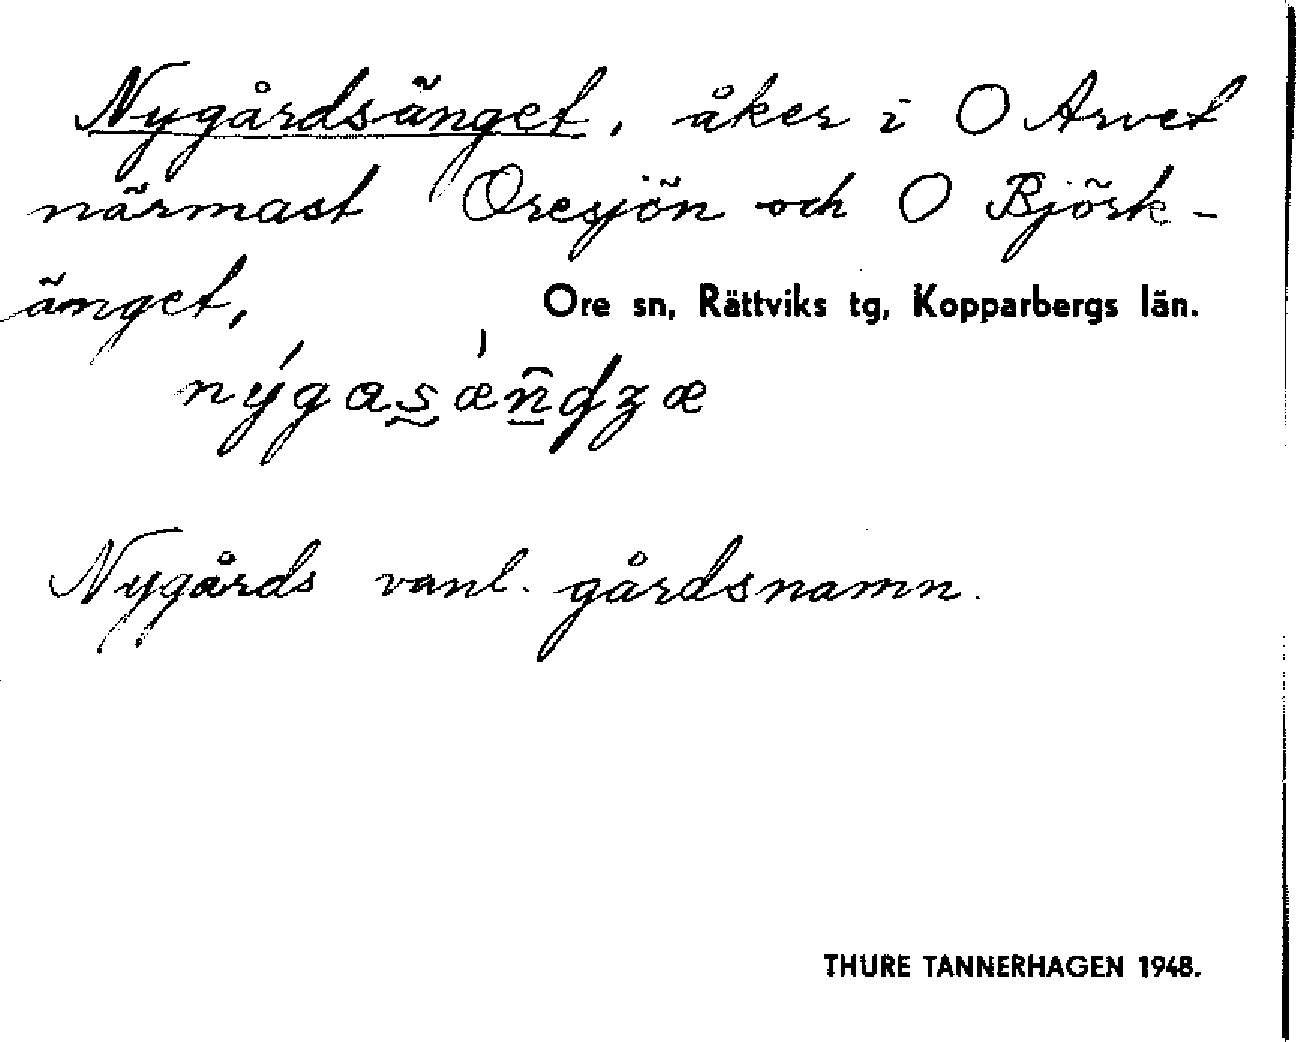 Nygårdsänget, åker i O Arvet
närmast Oresjön och O Björk-
änget,
Ore sn, Rättviks tg, Kopparbergs län.
Nygårds vanl. gårdsnamn.
THURE TANNERHAGEN 1948.